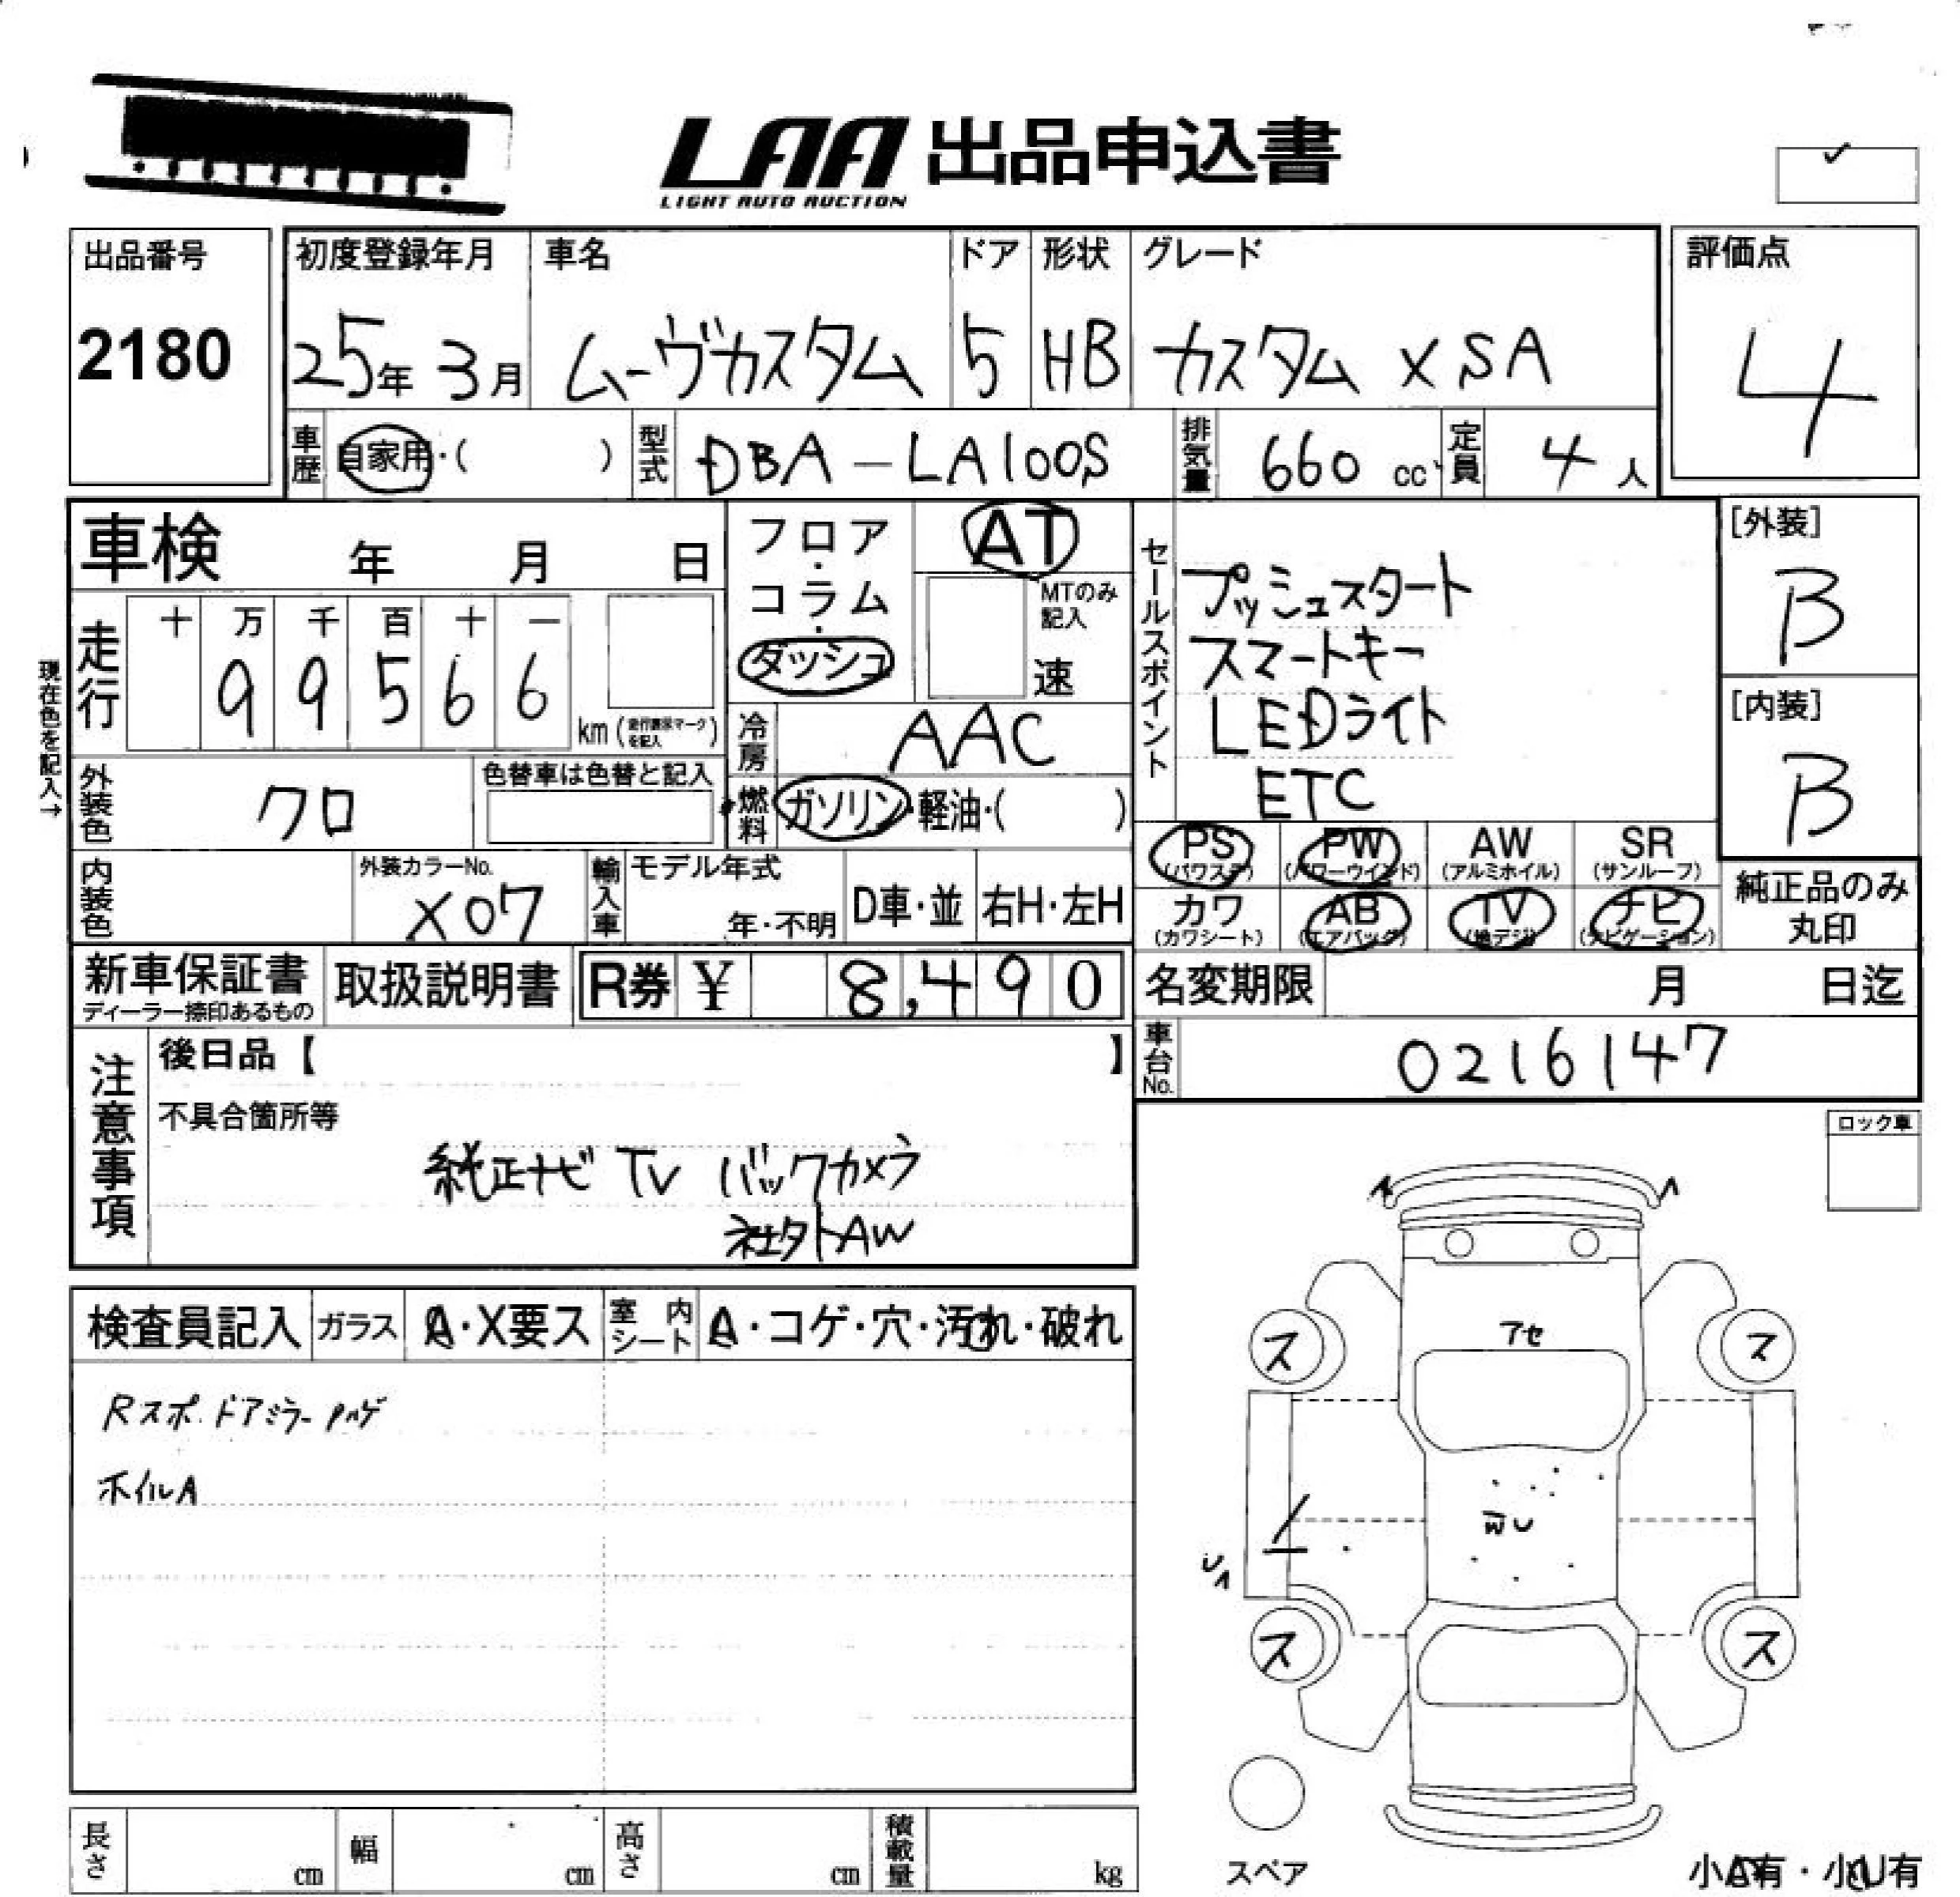 LAA 出品申込書
LIGHT AUTO AUCTION
出品番号
2180
初度登録年月 車名 ドア 形状 グレード
25年 3月 ムーヴカスタム 5 HB カスタム X SA
評価点
4
車歴 自家用・( ) 型式 DBA-LA100S 排気量 660 cc 定員 4 人
車検 年 月 日
フロア・コラム・ダッシュ
AT
MTのみ記入
速
セールスポイント
プッシュスタート
スマートキー
LEDライト
ETC
[外装]
B
[内装]
B
現在色を記入→
走行 十 万 千 百 十 一
99566 km
冷房 AAC
外装色 クロ 色替車は色替と記入
燃料 ガソリン・軽油・( )
PS PW AW SR
(パワステ) (パワーウインド) (アルミホイル) (サンルーフ)
カワ AB TV ナビ
(カワシート) (エアバッグ) (地デジ) (ナビゲーション)
純正品のみ
丸印
内装色 外装カラーNo. X07 輸入車 モデル年式 年・不明 D車・並 右H・左H
新車保証書 取扱説明書 R券 ¥ 8,490
ディーラー捺印あるもの
名変期限 月 日迄
車台No. 0216147
注意事項
後日品【 】
不具合箇所等
純正ナビ TV バックカメラ
社外AW
ロック車
検査員記入 ガラス A・X要ス 室内シート A・コゲ・穴・汚れ・破れ
Rスポ. ドアミラーハゲ
ホイルA
アセ
ス ス
ス ス
スペア
長さ cm 幅 cm 高さ cm 積載量 kg
小A有・小U有